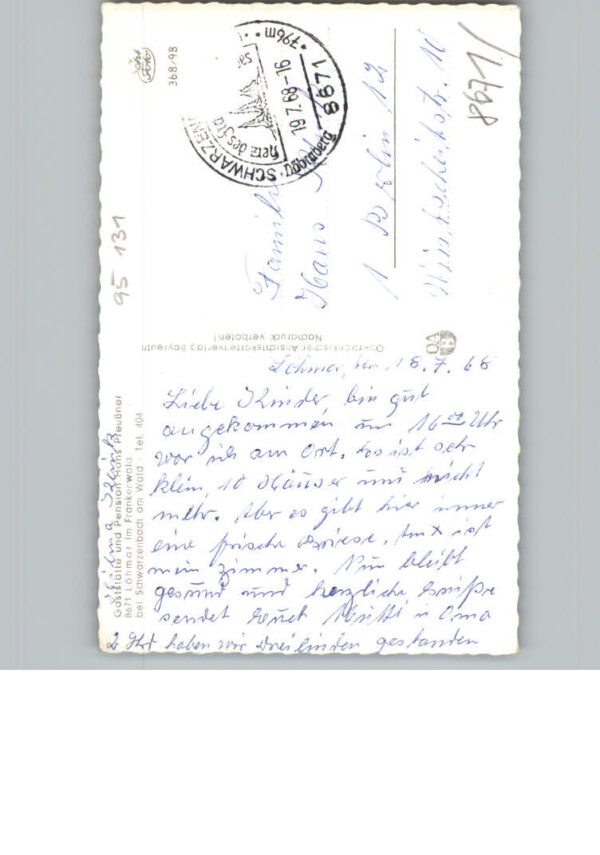 Gaststätte und Pension Hans Pleußner
8671 Löhmar im Frankenwald
bei Schwarzenbach am Wald · Tel. 404
Löhmar, den 18.7.68
Liebe Kinder, bin gut
angekommen, um 16 Uhr
war ich am Ort. Es ist sehr
klein, 10 Häuser und nicht
mehr. Aber es gibt hier immer
eine frische Briese. ist
mein Zimmer. Nun bleibt
gesund und herzliche Grüße
sendet Euch Mutti u Oma
2 Std haben wir Dreilinden gestanden
Oberfränkischer Ansichtskartenverlag Bayreuth
Nachdruck verboten!
OAB
368/98
95 131
SCHWARZENB
Döbraberg
8671
19.7.68-16
796m
herz des fra
Familie
Hans
1 Berlin 12
8671/